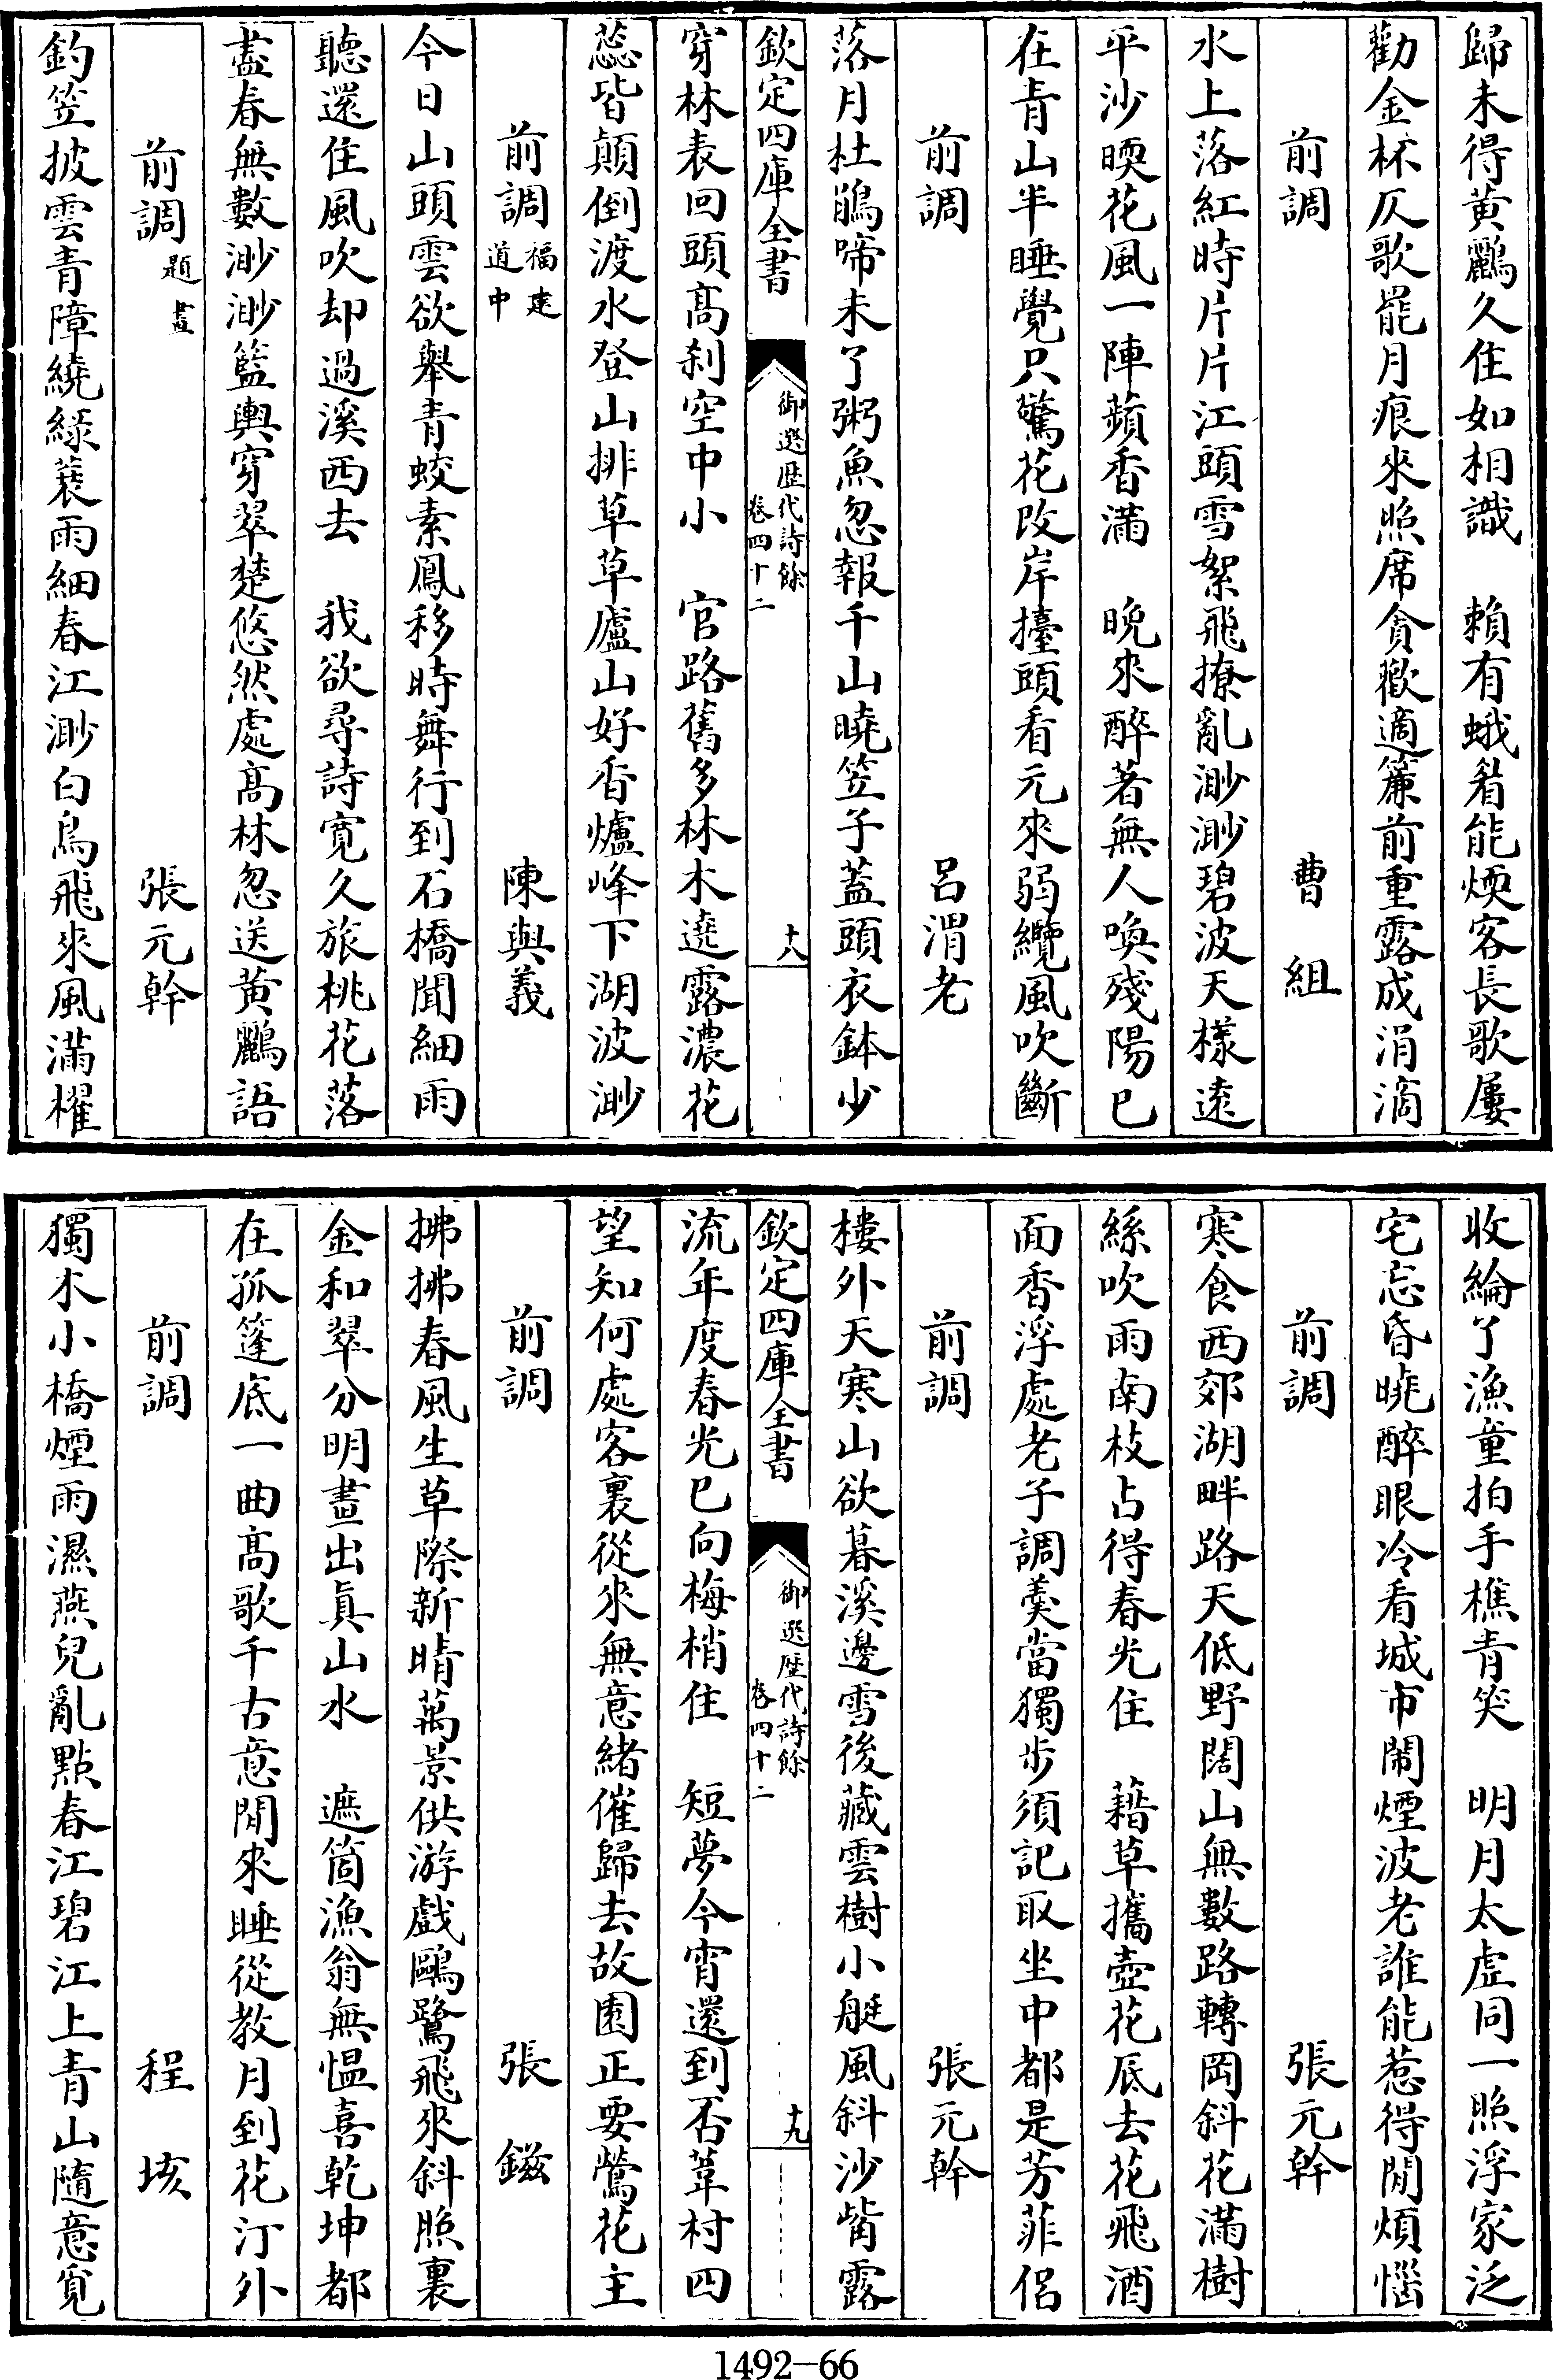 歸未得黄鸝久住如相識　賴有蛾眉能煗客長歌屢
勸金杯仄歌罷月痕來照席貪歡適簾前重露成涓滴
前調　曹組
水上落紅時片片江頭雪絮飛撩亂渺渺碧波天樣遠
平沙暎花風一陣蘋香滿　晩來醉著無人喚殘陽已
在青山半睡覺只驚花改岸擡頭看元來弱纜風吹斷
前調　呂渭老
落月杜鵑啼未了粥魚忽報千山曉笠子蓋頭衣鉢少
欽定四庫全書　御選歴代詩餘　卷四十二　十八
穿林表回頭髙刹空中小　官路舊多林木遶露濃花
蕊皆顛倒渡水登山排草草廬山好香爐峰下湖波渺
前調福建道中　陳與義
今日山頭雲欲舉青蛟素鳳移時舞行到石橋聞細雨
聽還住風吹却過溪西去　我欲尋詩寛久旅桃花落
盡春無數渺渺籃輿穿翠楚悠然處髙林忽送黄鸝語
前調題畫　張元幹
釣笠披雲青障繞緑蓑雨細春江渺白鳥飛來風滿櫂
收綸了漁童拍手樵青笑　明月太虛同一照浮家泛
宅忘昏曉醉眼冷看城市鬧煙波老誰能惹得閒煩惱
前調　張元幹
寒食西郊湖畔路天低野闊山無數路轉岡斜花滿樹
絲吹雨南枝占得春光住　藉草攜壺花底去花飛酒
面香浮處老子調羹當獨步須記取坐中都是芳菲侣
前調　張元幹
樓外天寒山欲暮溪邊雪後藏雲樹小艇風斜沙觜露
欽定四庫全書　御選歴代詩餘　卷四十二　十九
流年度春光已向梅梢住　短夢今宵還到否葦村四
望知何處客裏從來無意緒催歸去故園正要鶯花主
前調　張鎡
拂拂春風生草際新晴萬景供游戲鷗鷺飛來斜照裏
金和翠分明畫出眞山水　遮箇漁翁無愠喜乾坤都
在孤篷底一曲髙歌千古意閒來睡從教月到花汀外
前調　程垓
獨木小橋煙雨濕燕兒亂點春江碧江上青山隨意覓
1492—66